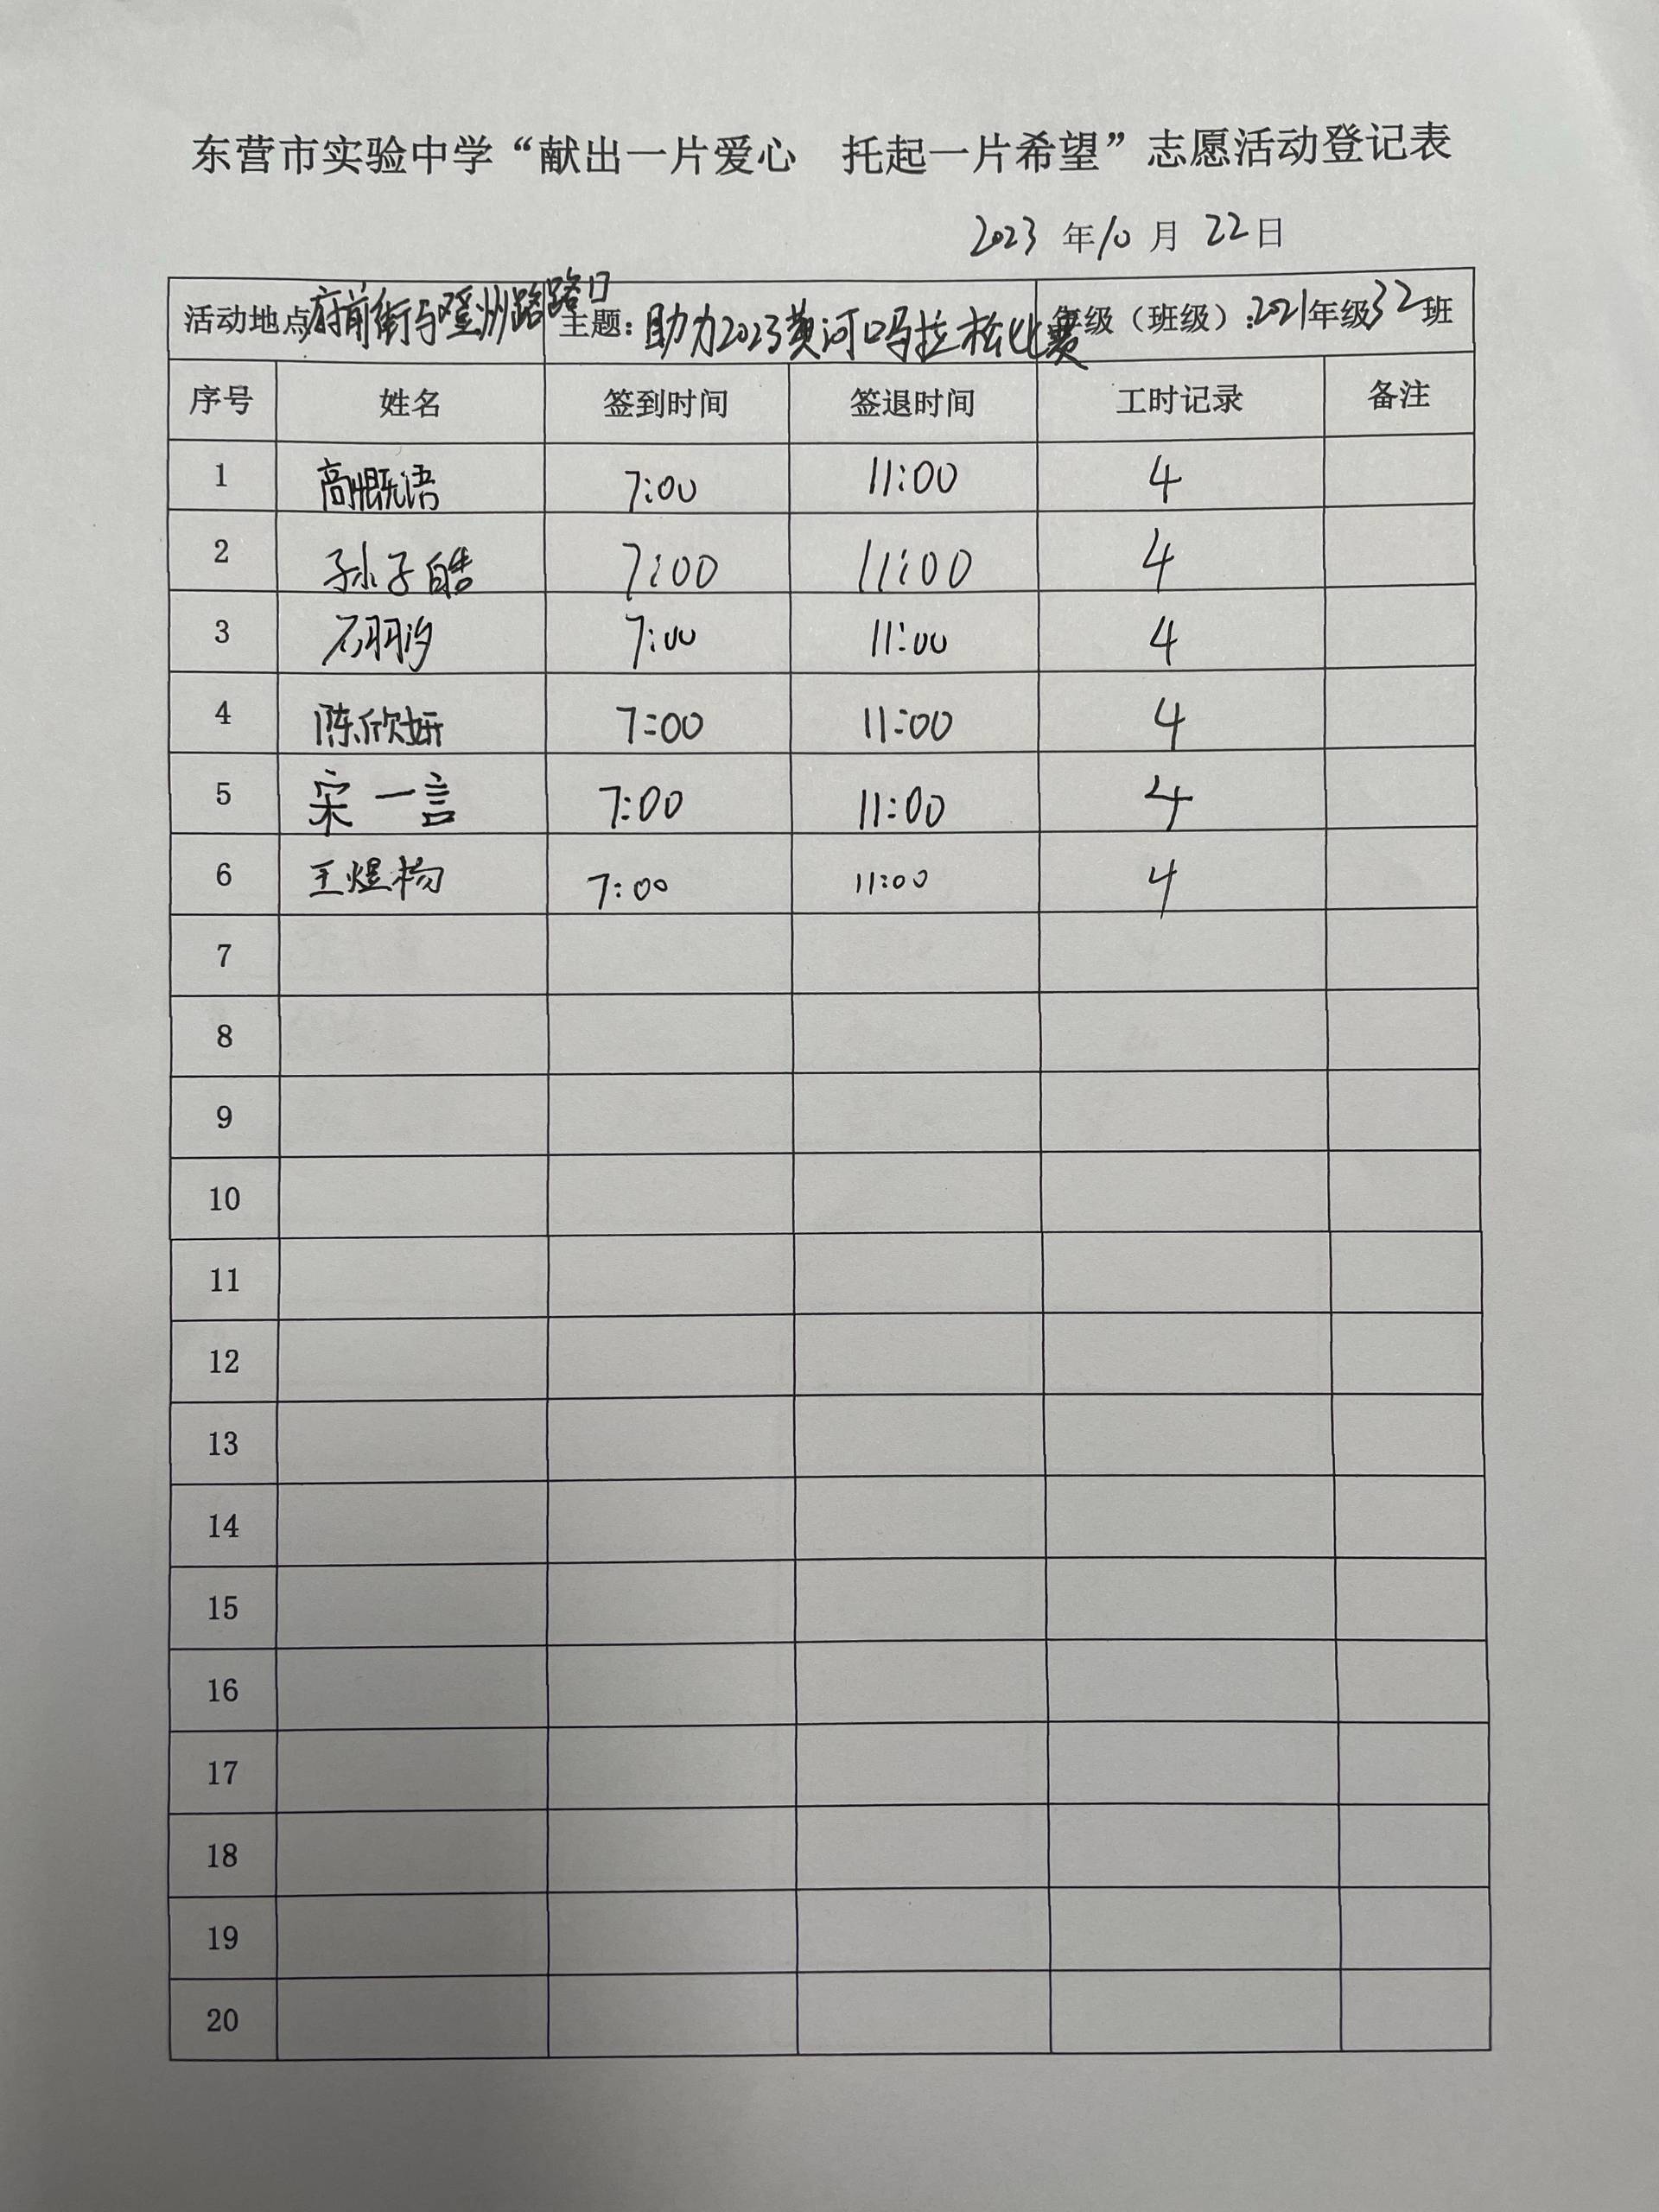 东营市实验中学“献出一片爱心 托起一片希望”志愿活动登记表
2023 年 10 月 22 日
活动地点 府前街与登州路路口 主题：助力2023黄河口马拉松比赛 年级（班级）：2021年级32班
序号 姓名 签到时间 签退时间 工时记录 备注
1 高慨语 7:00 11:00 4
2 孙子皓 7:00 11:00 4
3 石羽汐 7:00 11:00 4
4 陈欣妍 7:00 11:00 4
5 宋一言 7:00 11:00 4
6 王煜杨 7:00 11:00 4
7
8
9
10
11
12
13
14
15
16
17
18
19
20